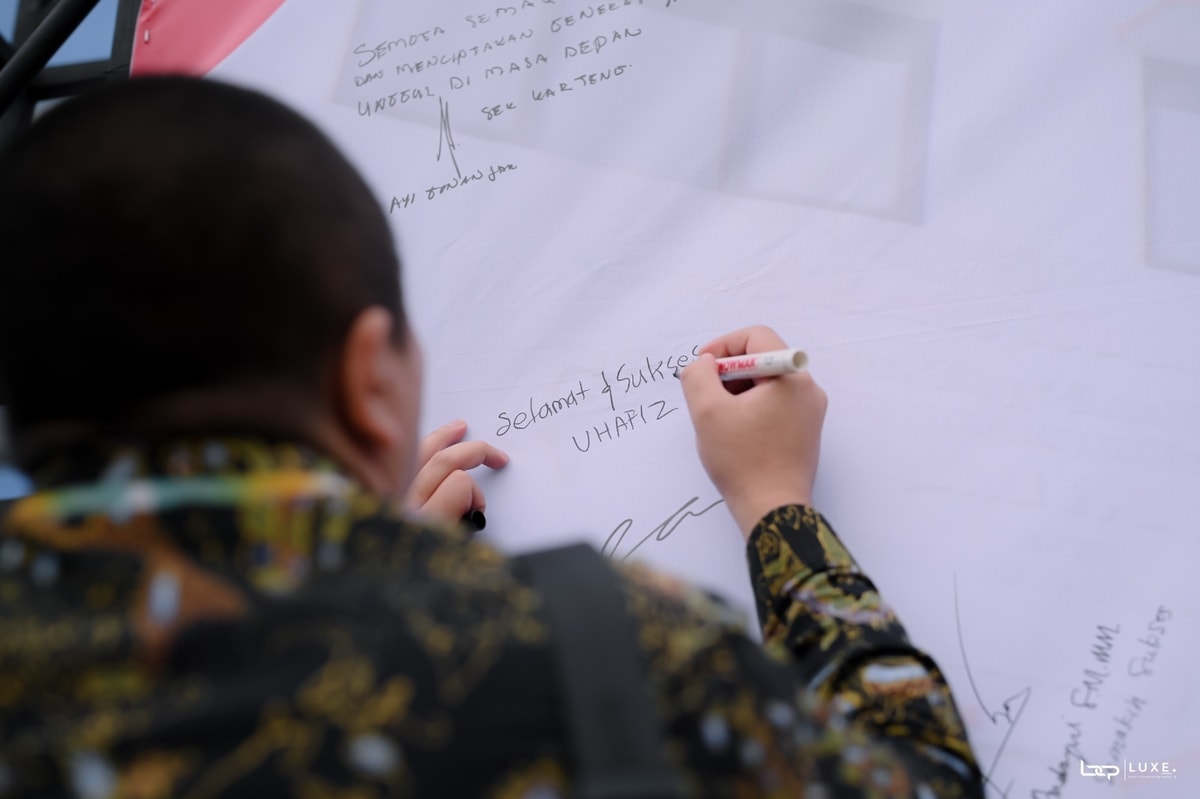 SEMOGA SEMA
DAN MENCIPTAKAN GENERAS
UNGGUL DI MASA DEPAN
SEK KARTENG.
Selamat & Sukses
UHAFIZ
Semakin Sukses
LUXE.